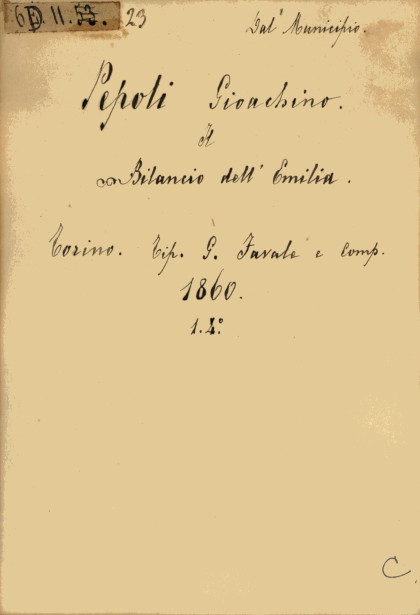 6D. II. 53. 23
Dal Municipio.
Pepoli Gioachino.
Il
Bilancio dell' Emilia.
Torino. Tip. G. Favale e Comp.
1860.
1.4°
C